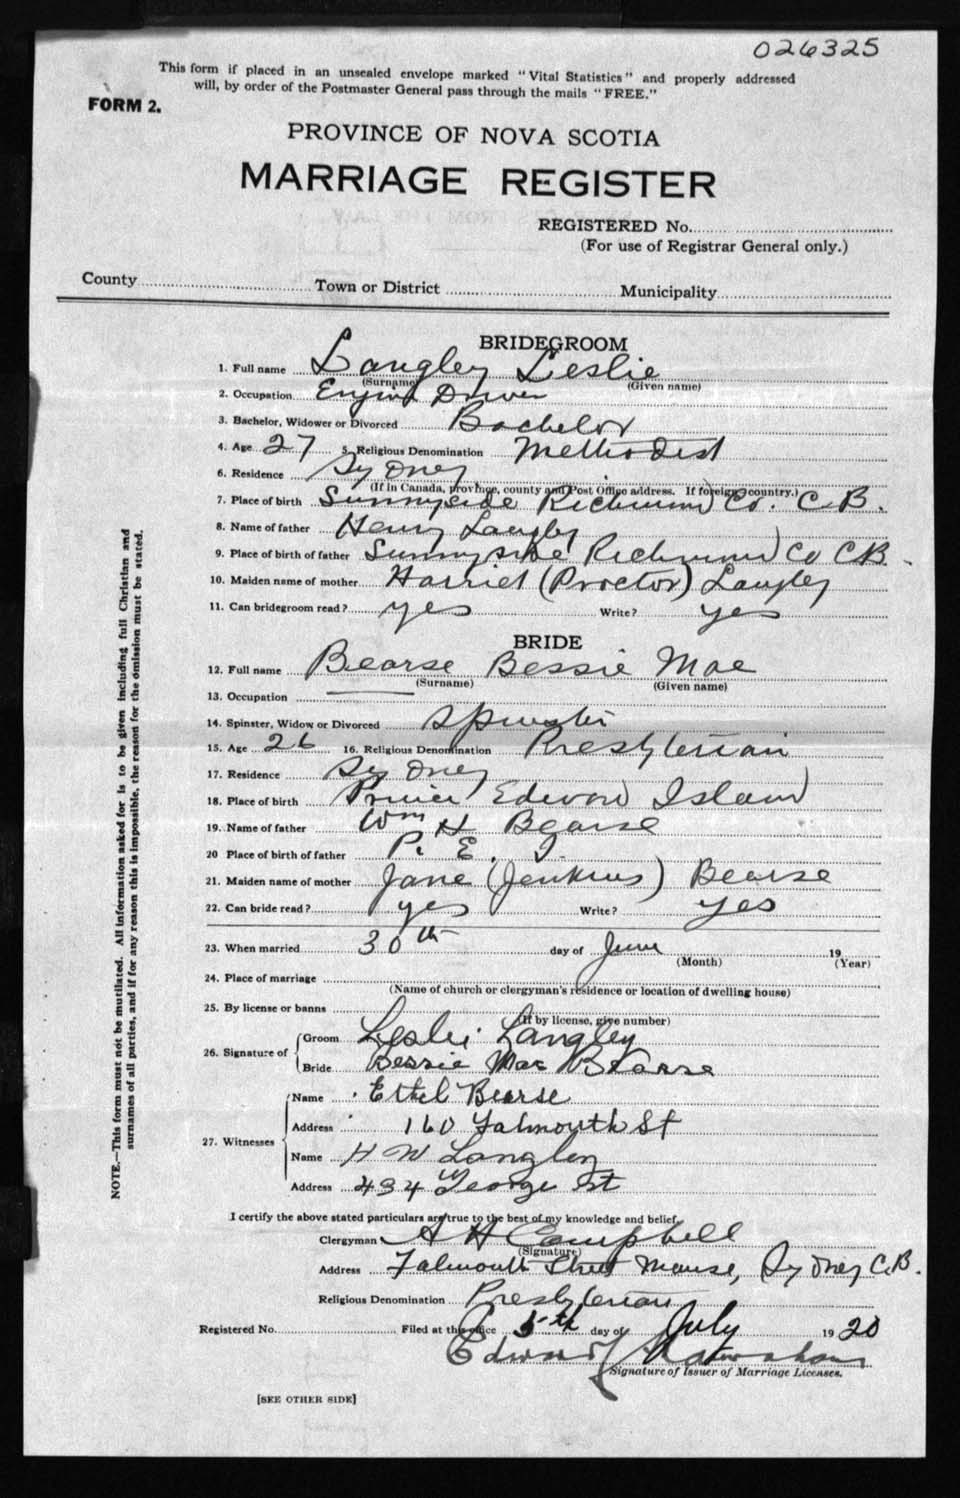 026325
This form if placed in an unsealed envelope marked "Vital Statistics" and properly addressed
will, by order of the Postmaster General pass through the mails "FREE."
FORM 2.
PROVINCE OF NOVA SCOTIA
MARRIAGE REGISTER
REGISTERED No.
(For use of Registrar General only.)
County Town or District Municipality
BRIDEGROOM
1. Full name Langley Leslie
(Surname) (Given name)
2. Occupation Engine Driver
3. Bachelor, Widower or Divorced Bachelor
4. Age 27 5. Religious Denomination Methodist
6. Residence Sydney
(If in Canada, province, county and Post Office address. If foreign country.)
7. Place of birth Sunnyside Richmond Co. C.B.
8. Name of father Henry Langley
9. Place of birth of father Sunnyside Richmond Co CB.
10. Maiden name of mother Harriet (Proctor) Langley
11. Can bridegroom read? yes Write? yes
BRIDE
12. Full name Bearse Bessie Mae
(Surname) (Given name)
13. Occupation
14. Spinster, Widow or Divorced Spinster
15. Age 26 16. Religious Denomination Presbyterian
17. Residence Sydney
18. Place of birth Prince Edward Island
19. Name of father Wm H Bearse
20 Place of birth of father P. E. I.
21. Maiden name of mother Jane (Jenkins) Bearse
22. Can bride read? yes Write? yes
23. When married 30th day of June 19
(Month) (Year)
24. Place of marriage
(Name of church or clergyman's residence or location of dwelling house)
25. By license or banns
(If by license, give number)
26. Signature of Groom Leslie Langley
Bride Bessie Mae Bearse
27. Witnesses Name Ethel Bearse
Address 160 Falmouth St
Name H W Langley
Address 434 George St
I certify the above stated particulars are true to the best of my knowledge and belief.
Clergyman A H Campbell
(Signature)
Address Falmouth Street Manse, Sydney C.B.
Religious Denomination Presbyterian
Registered No. Filed at this office 5th day of July 1920
Edward
Signature of Issuer of Marriage Licenses.
[SEE OTHER SIDE]
NOTE.—This form must not be mutilated. All information asked for is to be given including full Christian and
surnames of all parties, and if for any reason this is impossible, the reason for the omission must be stated.